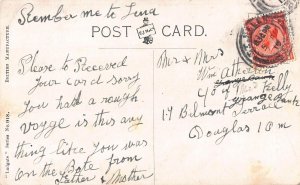 Remember me to Lend
POST CARD.
BRITISH MANUFACTURE.
Please to Received
your Card sorry
you had a rough
voyge is this any
thing like you was
on the Bote from
Father & Mother
Mr & Mrs
Wm Atherton
c/o Mrs Kelly
19 Belmont Terrace
Douglas I O M